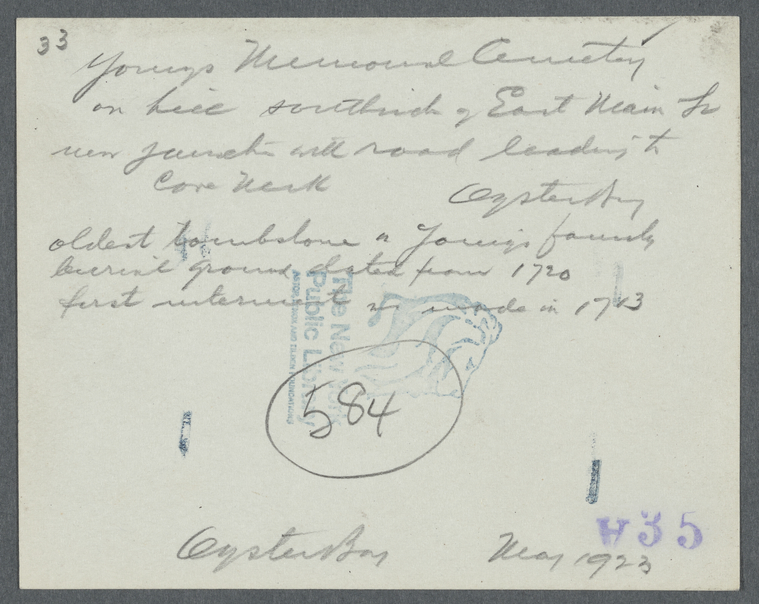 33
Youngs Memorial Cemetery
on hill southside of East Main St
near junction with road leading to
Cove Neck
Oyster Bay
oldest tombstone in Youngs family
burial ground dates from 1720
first interment was made in 1713
The New York
Public Library
ASTOR, LENOX AND TILDEN FOUNDATIONS
584
W35
Oyster Bay May 1923